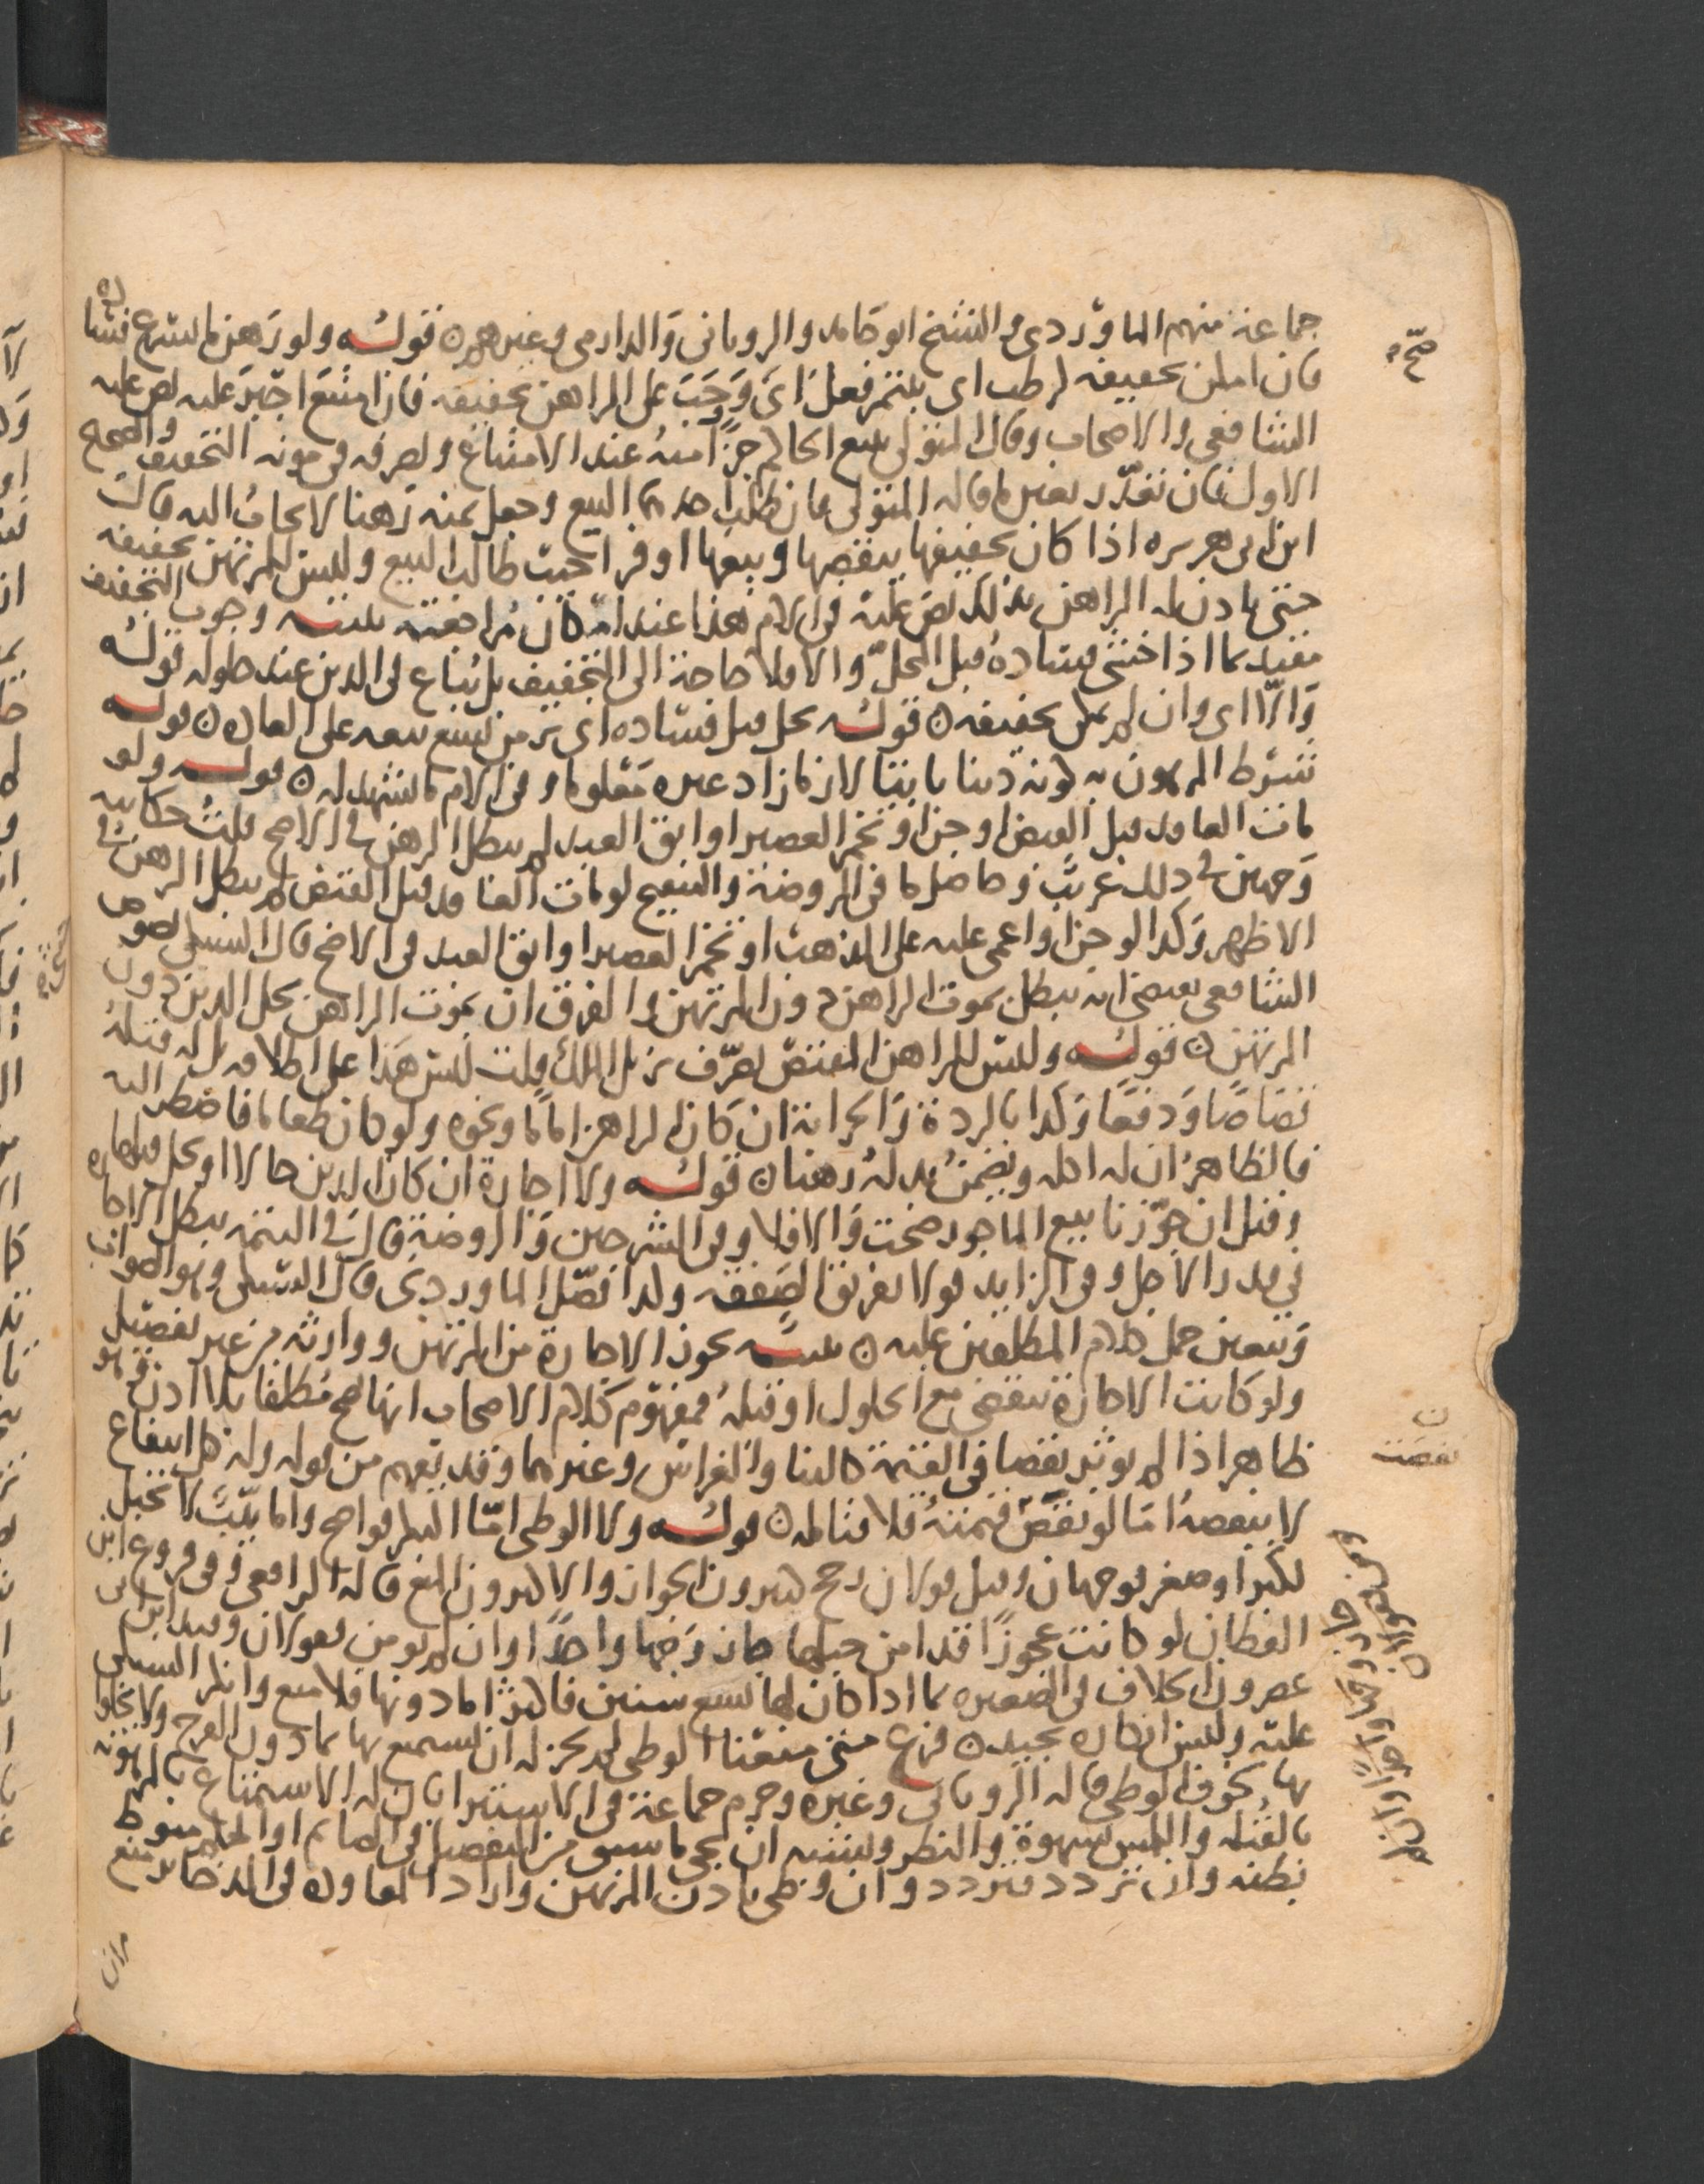 جماعة منهم الماوردى والشيخ ابو حامد والرويانى والدارمى وغيرهم ن قوله ولو رهن ما يسرع فساده
فان امكن تجفيفه كرطب اى بلتمر فعل اى وجب على الراهن تجفيفه فان امتنع اجبر عليه نص عليه
الشافعى والاصحاب وقال المتولى يبيع الحاكم جزأ منه عند الامتناع ويصرفه فى مونة التجفيف والصحيح
الاول فان تعذر تعين ما قاله المتولى فان طلب احدهما البيع وجعل ثمنه رهنا لا يجاب اليه قال
ابن ابى هريره اذا كان تجفيفها ينقصها وبيعها اوفر اجيب طالب البيع وليس للمرتهن تجفيفه
حتى ياذن له الراهن بذلك نص عليه فى الام هذا عند امكان مراجعته تنبيه وجوب التجفيف
مقيد بما اذا خشى فساده قبل المحل والا فلا حاجة الى التجفيف بل يباع فى الدين عند حلوله قوله
والا اى وان لم يمكن تجفيفه ن قوله يحل قبل فساده اى بزمن يسع بيعه على العادة ن قوله
شرط المرهون به كونه دينا ثابتا لازما زاد غيره معلوما وفى الام ما يشهد له ن قوله ولو
مات العاقد قبل القبض او جن او تخمر العصير او ابق العبد لم يبطل الرهن فى الاصح قلت حكايه
وجهين فى ذلك غريب وحاصل ما فى الروضة والتنقيح لو مات العاقد قبل القبض لم يبطل الرهن فى
الاظهر وكذا لو جن او اغمى عليه على المذهب او تخمر العصير او ابق العبد فى الاصح قال السبكى نصوص
الشافعى تقتضى انه يبطل بموت الراهن دون المرتهن والفرق ان بموت الراهن يحل الدين دون
المرتهن ن قوله وليس للراهن المقبض تصرف يزيل الملك قلت ليس هذا على اطلاقه بل له قتله
قصاصا ودفعا وكذا بالردة والحرابة ان كان الراهن اماما ونحوه ولو كان طعاما فاضطر اليه
فالظاهر ان له اكله ويضمن بدله رهنا ن قوله ولا اجارة ان كان الدين حالا او يحل قبلها
وقيل ان جوزنا بيع الماجور صحت والا فلا وفى الشرحين والروضة قال فى التتمه يبطل الاجاره
فى قدر الاجل وفى الزايد قولا تفريق الصفقه ولذا فصل الماوردى قال السبكى وهو الصواب
ويتعين حمل كلام المطلقين عليه ن تنبيه يجوز الاجارة من المرتهن ووارثه من غير تفصيل
ولو كانت الاجارة تنقضى مع الحلول او قبله فمفهوم كلام الاصحاب انها تصح مطلقا بلا اذن وهو
ظاهر اذا لم يوثر نقصا فى القيمة كالبنا والغراس وغيرهما وقد يفهم من قوله وله كل انتفاع
لا ينقصه اما لو نقص قيمته فلا قتامله ن قوله ولا الوطى اما البكر فواضح واما ثيب لا تحبل
لكبر او صغر فوجهان وقيل قولان رجح كثيرون الجواز والاكثرون المنع قاله الرافعى وفى فروع ابن
القطان لو كانت عجوزا قد امن حبلها جاز وجها واحدا وان لم يومن فقولان وقيد ابن ابى
عصرون الخلاف فى الصغيره بما اذا كان لها تسع سنين فاكثر اما دونها فلا منع وانكر السبكى
عليه وليس انكاره بجيد ن فرع متى منعنا الوطى لم يجز له ان يستمتع بها بما دون الفرج ولا يخلو
بها لخوف الوطى قاله الرويانى وغيره وجزم جماعة فى الاستبرا بان له الاستمتاع بالمرهونه
بالقبله واللمس بشهوة والنظر ويشبه ان يجى ما سبق من التفصيل فى الصايم او الحكم منوط
بظنه وان تردد فتردد وان وطى باذن المرتهن واراد المعاوده فى الذخاير منع
صح
ن
نقصت
جاز وجها واحدا وان لم
يومن فقولان